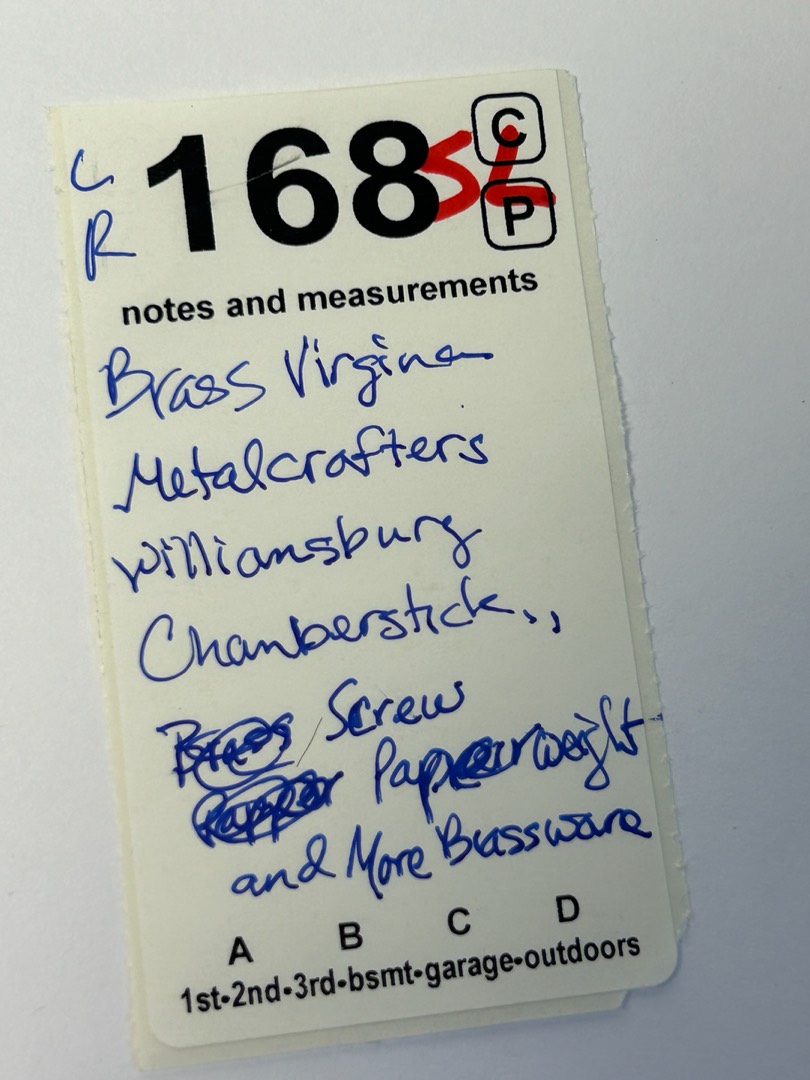 C
R
168 SL
C
P
notes and measurements
Brass Virginia
Metalcrafters
Williamsburg
Chamberstick,,
Screw
Paperweight
and More Brassware
A B C D
1st•2nd•3rd•bsmt•garage•outdoors